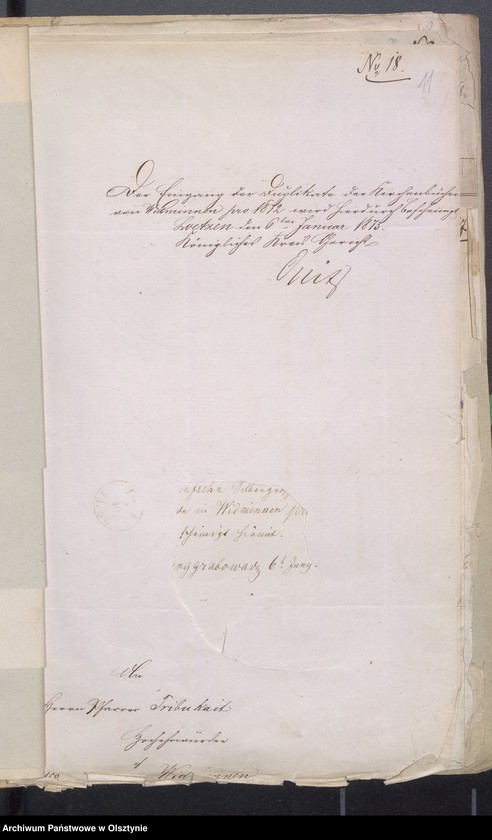 No 18.
11
Der Eingang der Duplikate der Kirchenbücher
von Widminnen pro 1872 wird hierdurch bescheinigt
Loetzen den 6ten Januar 1873.
Königliches Kreis Gericht
Silbergro
in Widminnen pro
scheinigt hiermit.
6t Jany.
An
Herrn Pfarrer Tribukait
Hochehrwürden
Widminnen
Archiwum Państwowe w Olsztynie